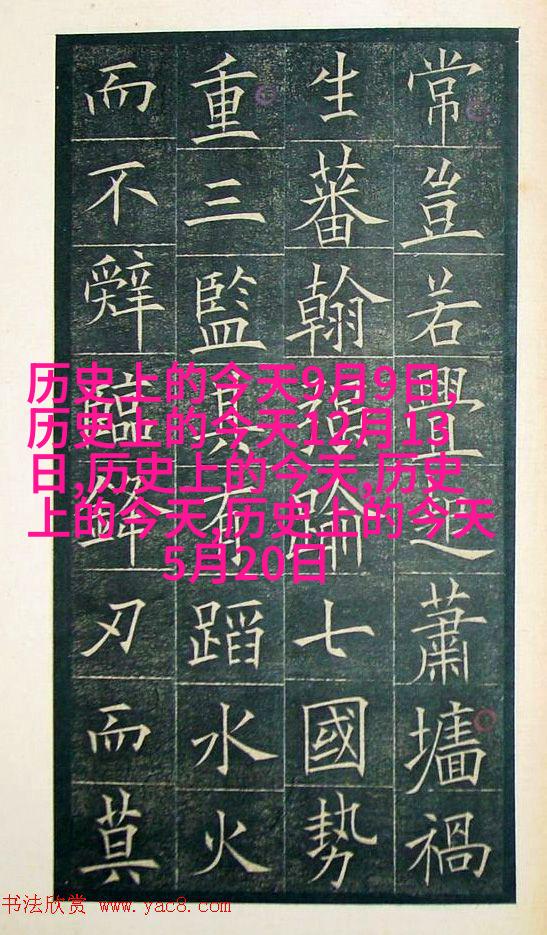 常豈若舋起蕭墻禍
生蕃翰強踰七國勢
重三監其有蹈水火
而不辭臨鋒刃而莫
历史上的今天9月9日,
历史上的今天12月13
日,历史上的今天,历史
上的今天,历史上的今天
5月20日
书法欣赏 www.yac8.com